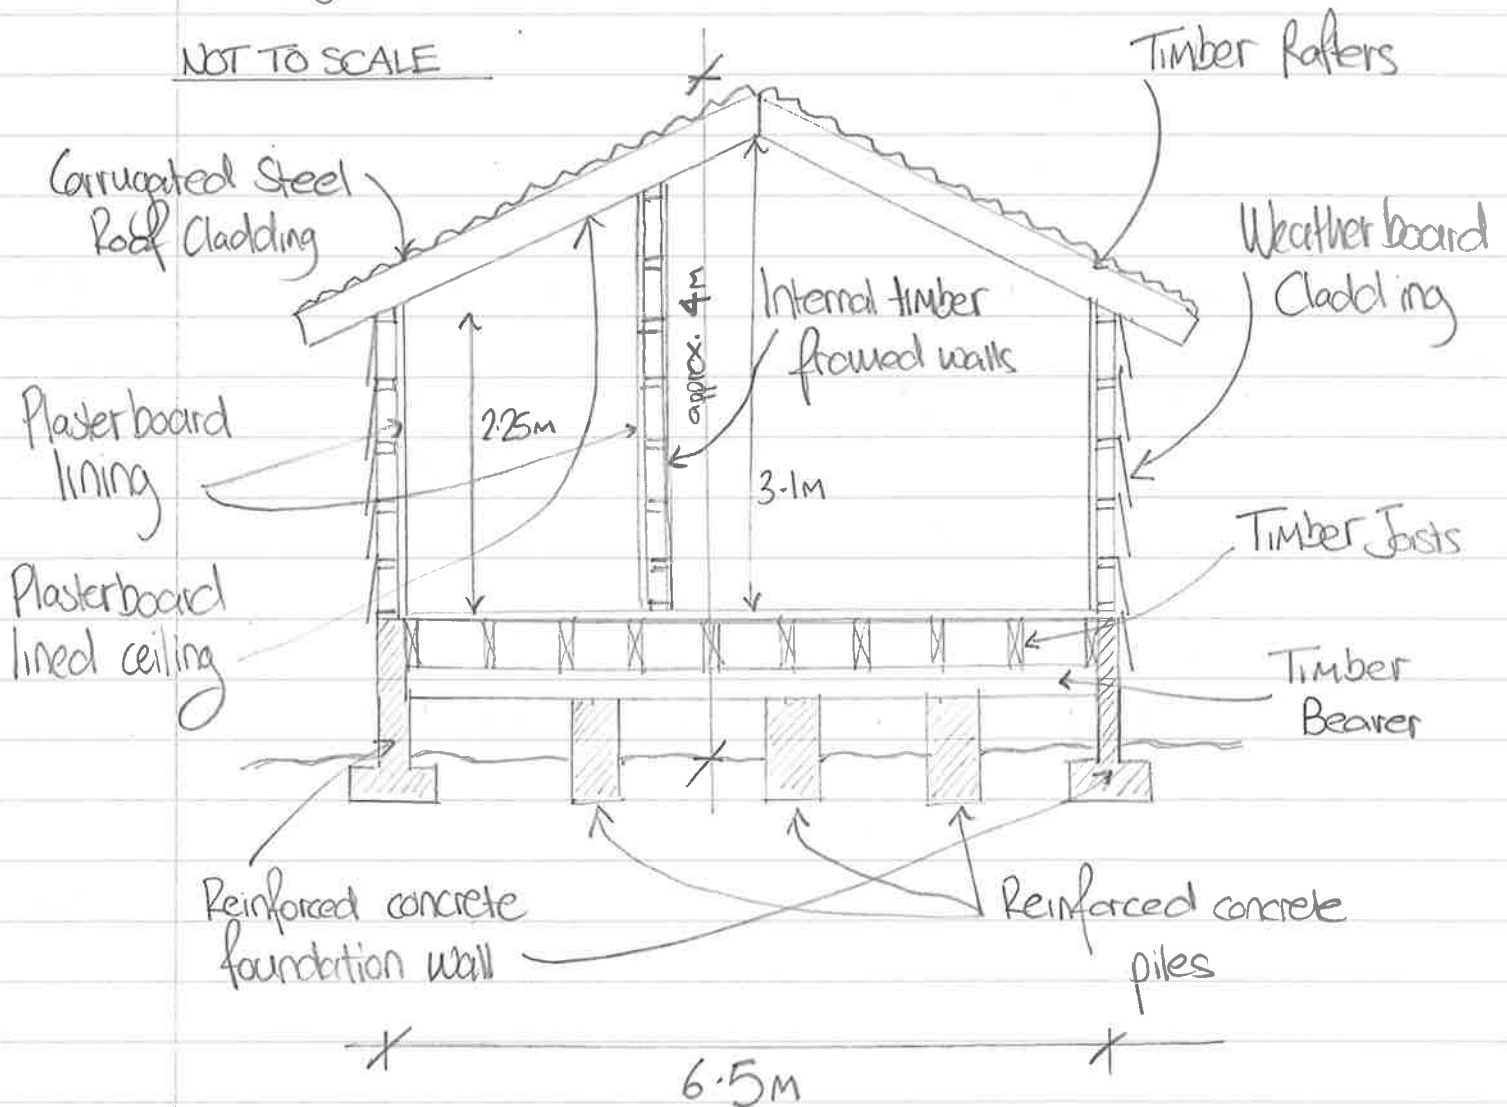 NOT TO SCALE
Timber Rafters
Corrugated Steel
Roof Cladding
Weatherboard
Cladding
approx. 4m
Internal timber
framed walls
Plasterboard
lining
2.25m
3.1m
Timber Joists
Plasterboard
lined ceiling
Timber
Bearer
Reinforced concrete
foundation wall
Reinforced concrete
piles
6.5m